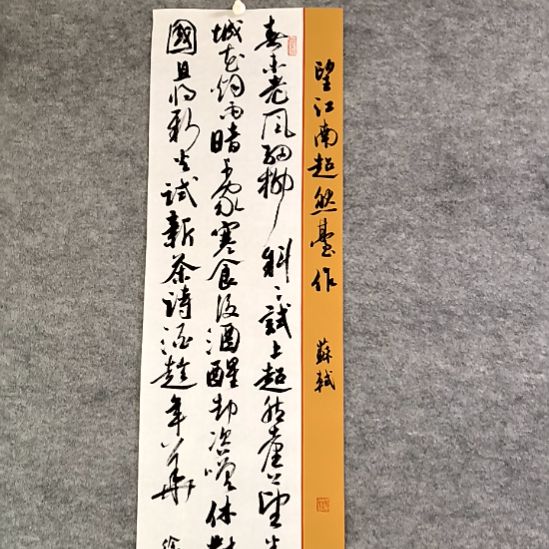 望江南超然臺作 蘇軾
春未老風細柳斜〻試上超然臺上望半
城花烟雨暗千家寒食後酒醒却咨嗟休對
國且将新火試新茶詩酒趁年華